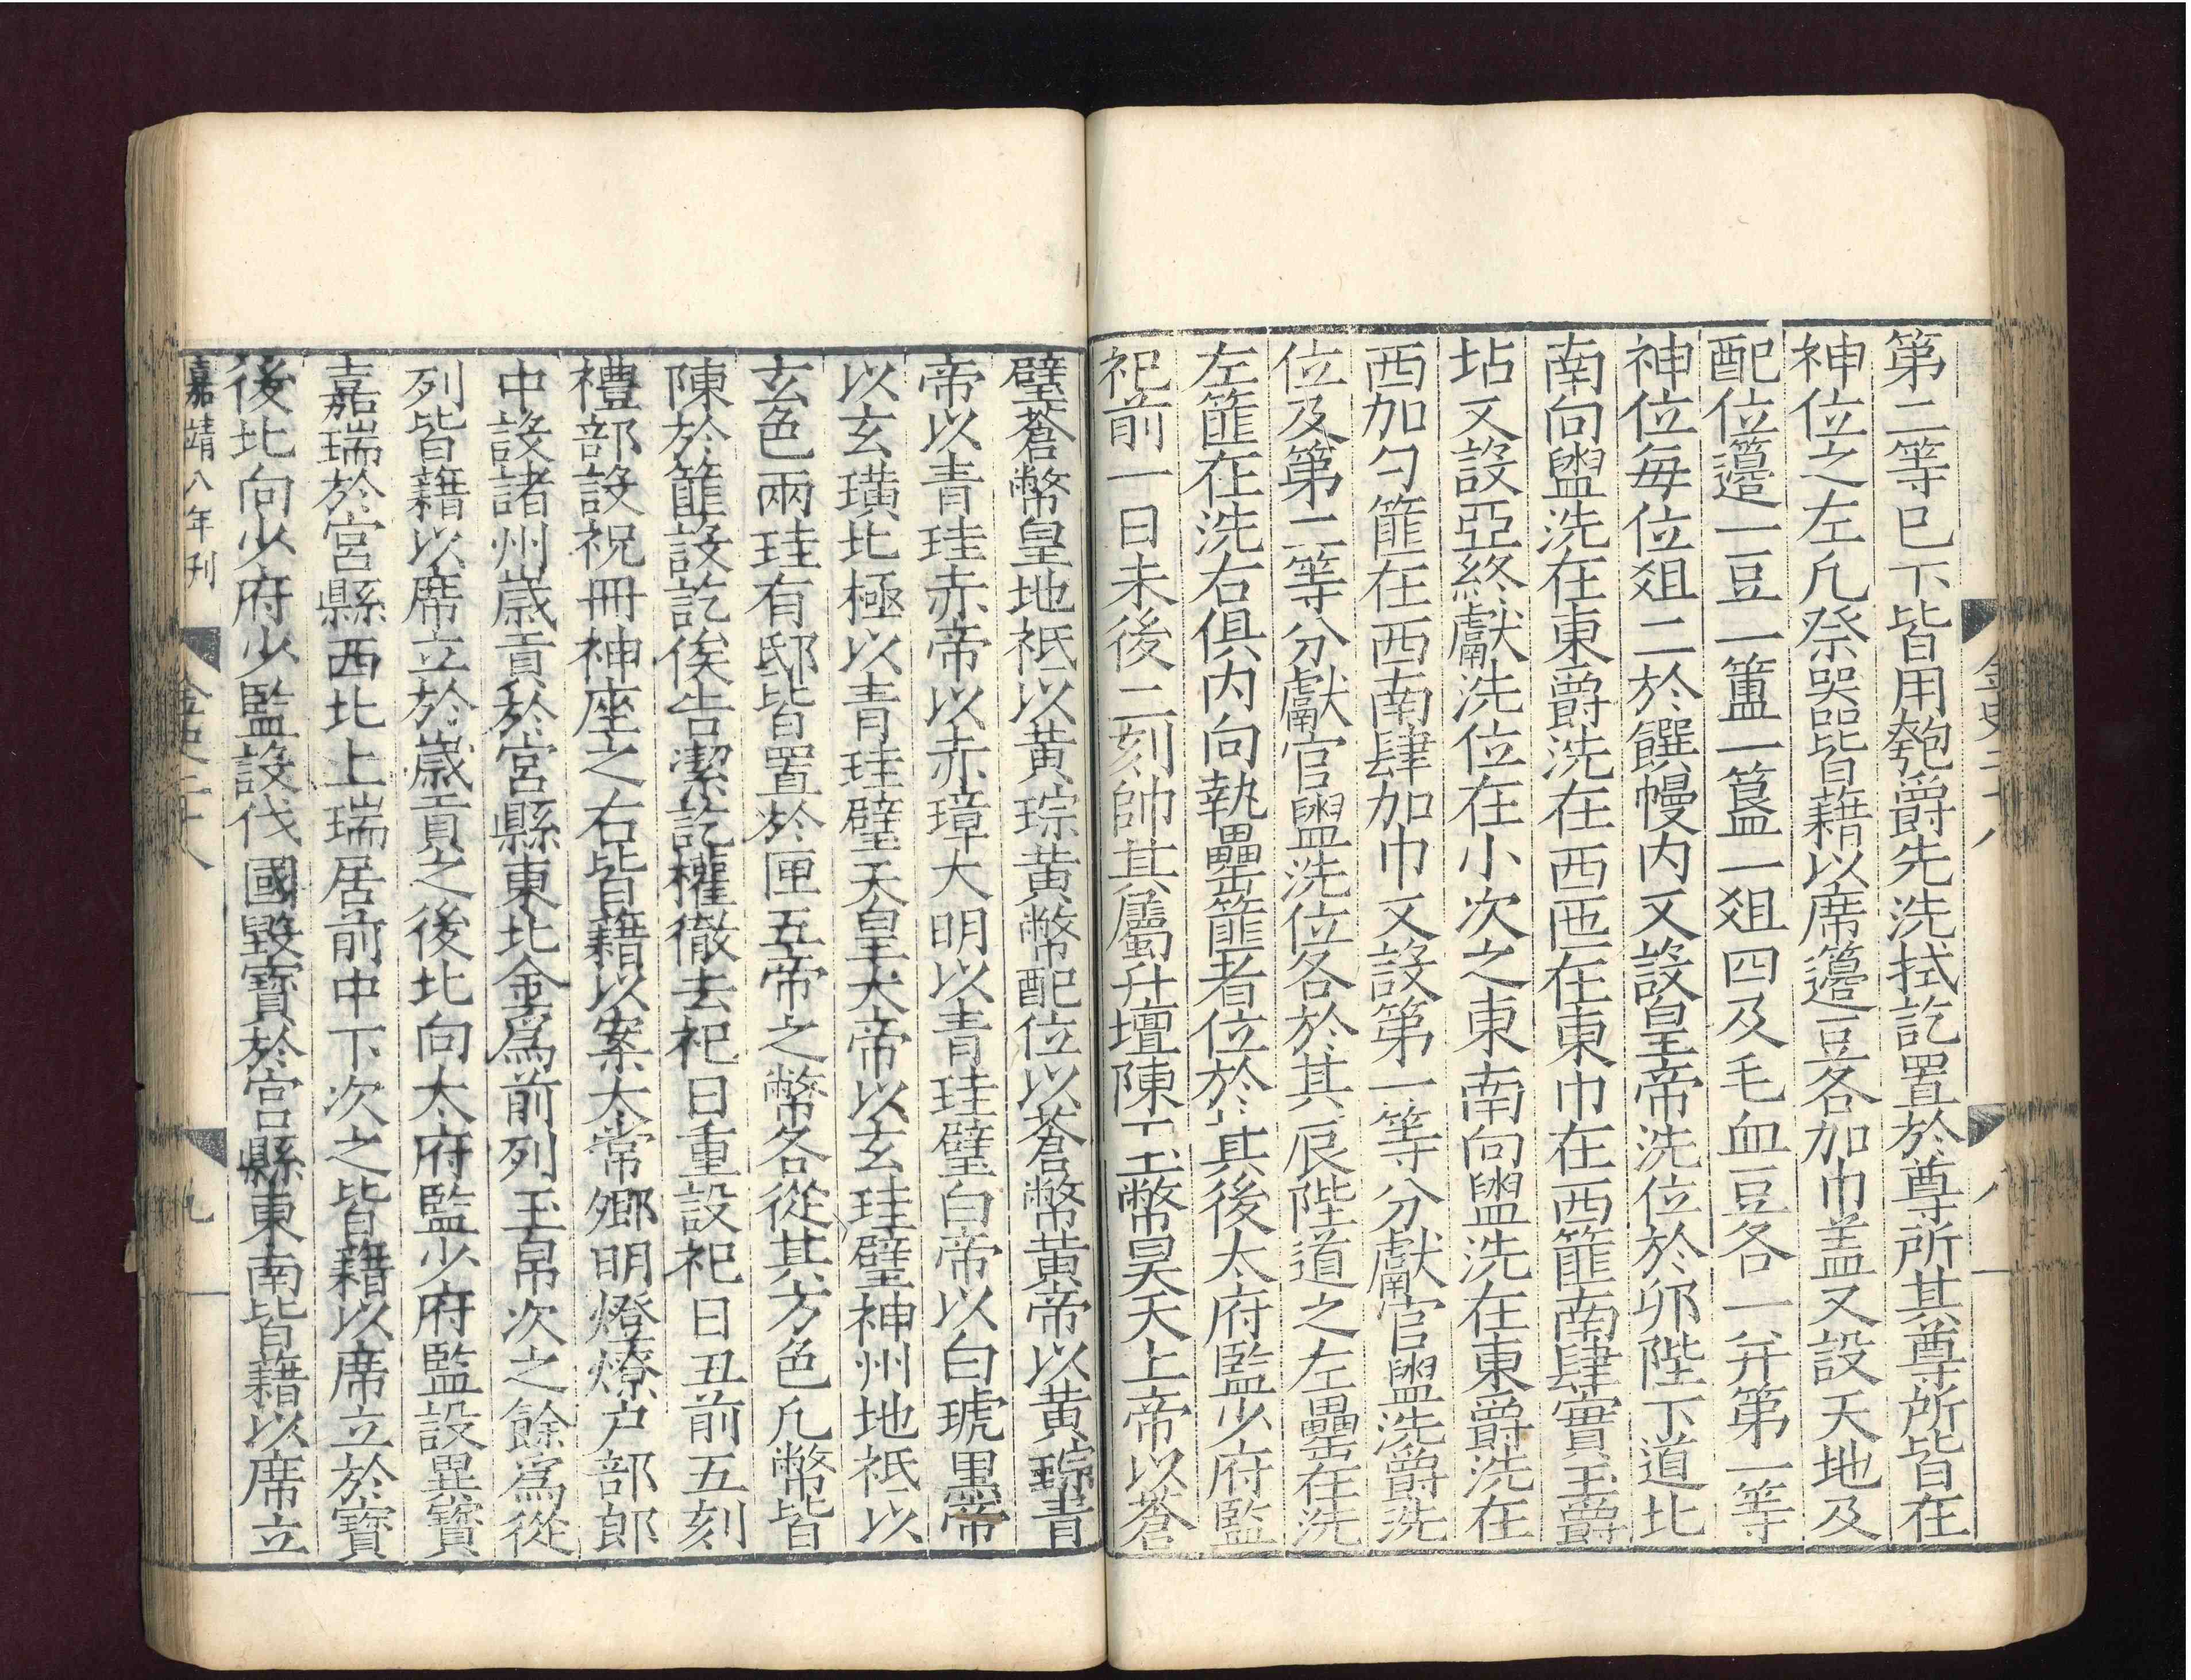 第二等已下皆用匏爵先洗拭訖置於尊所其尊所皆在
神位之左凡祭器皆藉以席籩豆各加巾盖又設天地及
配位籩一豆一簠一簋一俎四及毛血豆各一并第一等
神位每位俎二於饌幔内又設皇帝洗位於卯陛下道北
南向盥洗在東爵洗在西匜在東巾在西篚南肆實玉爵
坫又設亞終獻洗位在小次之東南向盥洗在東爵洗在
西加勺篚在西南肆加巾又設第一等分獻官盥洗爵洗
位及第二等分獻官盥洗位各於其辰陛道之左罍在洗
左篚在洗右俱内向執罍篚者位於其後太府監少府監
祀前一日未後二刻帥其屬升壇陳玉幣昊天上帝以蒼
璧蒼幣皇地祇以黃琮黃幣配位以蒼幣黃帝以黃琮青
帝以青珪赤帝以赤璋大明以青珪璧白帝以白琥黑帝
以玄璜北極以青珪璧天皇大帝以玄珪璧神州地祇以
玄色兩珪有邸皆置於匣五帝之幣各從其方色凡幣皆
陳於篚設訖俟告潔訖權徹去祀日重設祀日丑前五刻
禮部設祝冊神座之右皆藉以案太常卿明燈燎户部郎
中設諸州歲貢於宮縣東北金爲前列玉帛次之餘爲從
列皆藉以席立於歲貢之後北向太府監少府監設異寶
嘉瑞於宮縣西北上瑞居前中下次之皆藉以席立於寶
後北向少府少監設伐國毀寶於宮縣東南皆藉以席立
嘉靖八年刊
金史二十八
八
金史二十八
九